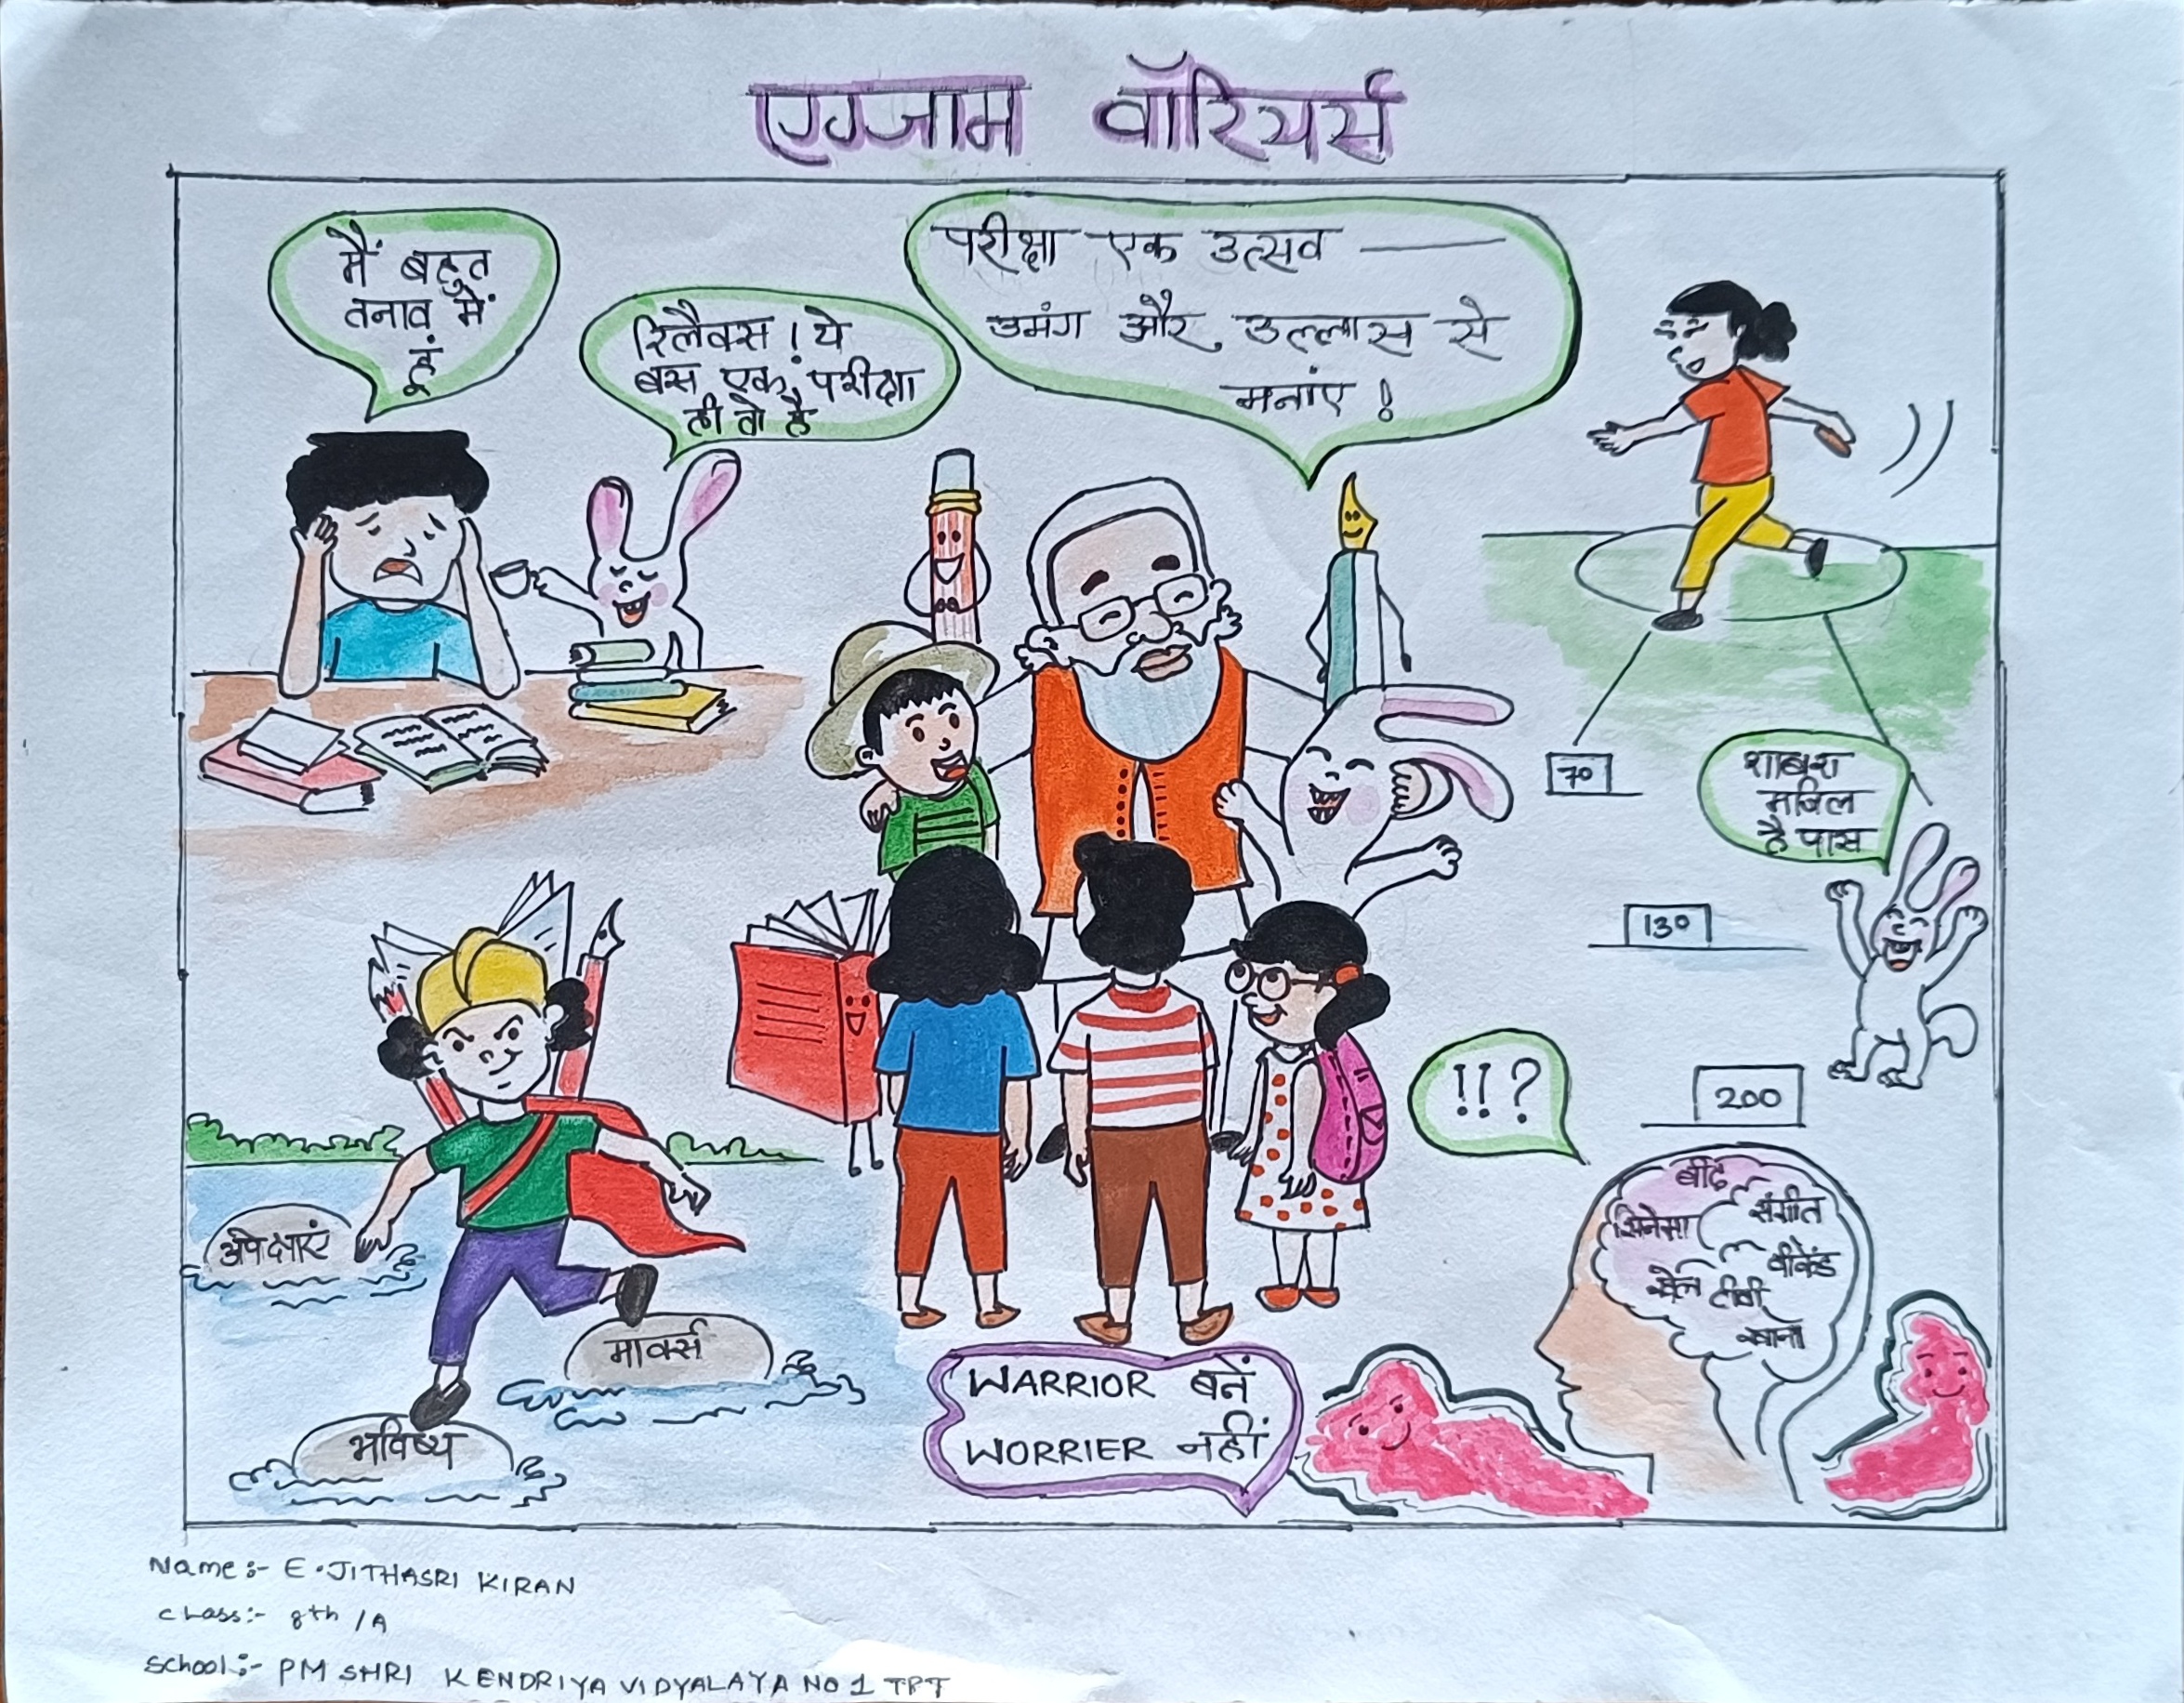 एग्जाम वॉरियर्स
मैं बहुत
तनाव में
हूं
रिलैक्स! ये
बस एक परीक्षा
ही तो है
परीक्षा एक उत्सव —
उमंग और उल्लास से
मनांए!
70
शाबाश
मंजिल
है पास
130
200
!!?
नींद
सिनेमा
संगीत
वीकेंड
खेल
टीवी
खाना
अपेक्षाएं
मार्क्स
भविष्य
WARRIOR बनें
WORRIER नहीं
Name:- E.JITHASRI KIRAN
class:- 8th /A
School:- PM SHRI KENDRIYA VIDYALAYA NO 1 TPT